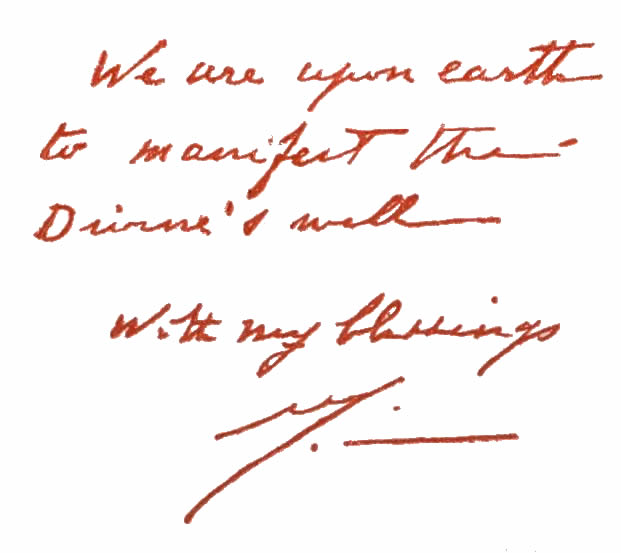 We are upon earth
to manifest the
Divine's will
With my blessings